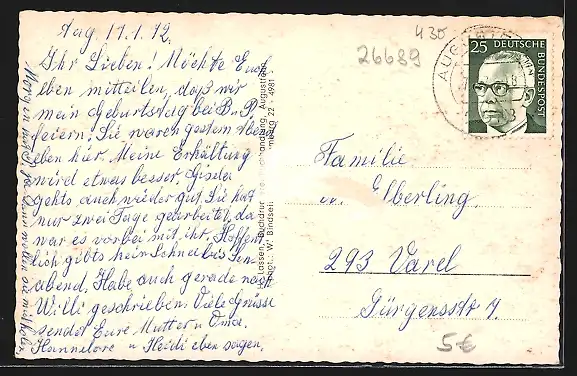 Aug 17.1.72.
Ihr Lieben! Möchte Euch
eben mitteilen, daß wir
mein Geburtstag bei B. u. P.
feiern. Sie waren gestern
eben hier. Meine Erkältung
wird etwas besser. Gisela
gehts auch wieder gut. Sie hat
nur zwei Tage gearbeitet, da
war es vorbei mit ihr. Hoffent
lich gibts kein Schnee bis Sonn
abend. Habe auch gerade nach
Willi geschrieben. Viele Grüsse
sendet Eure Mutter u. Oma.
Hannelore u Heidi eben sagen.
Morgen
Lassen, Buchdruckerei
Buchhandlung, Augustfehn
22 - 4981
phot.: W. Bindseil
430
26689
AUGUSTFEHN
25 DEUTSCHE
BUNDESPOST
Familie
W. Elberling
293 Varel
Jürgensstr 4
5€